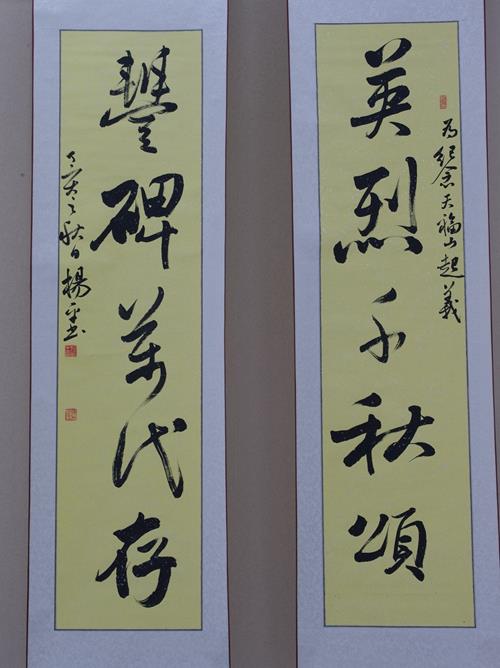 为紀念天福山起義
英烈千秋頌
豐碑萬代存
之秋日楊